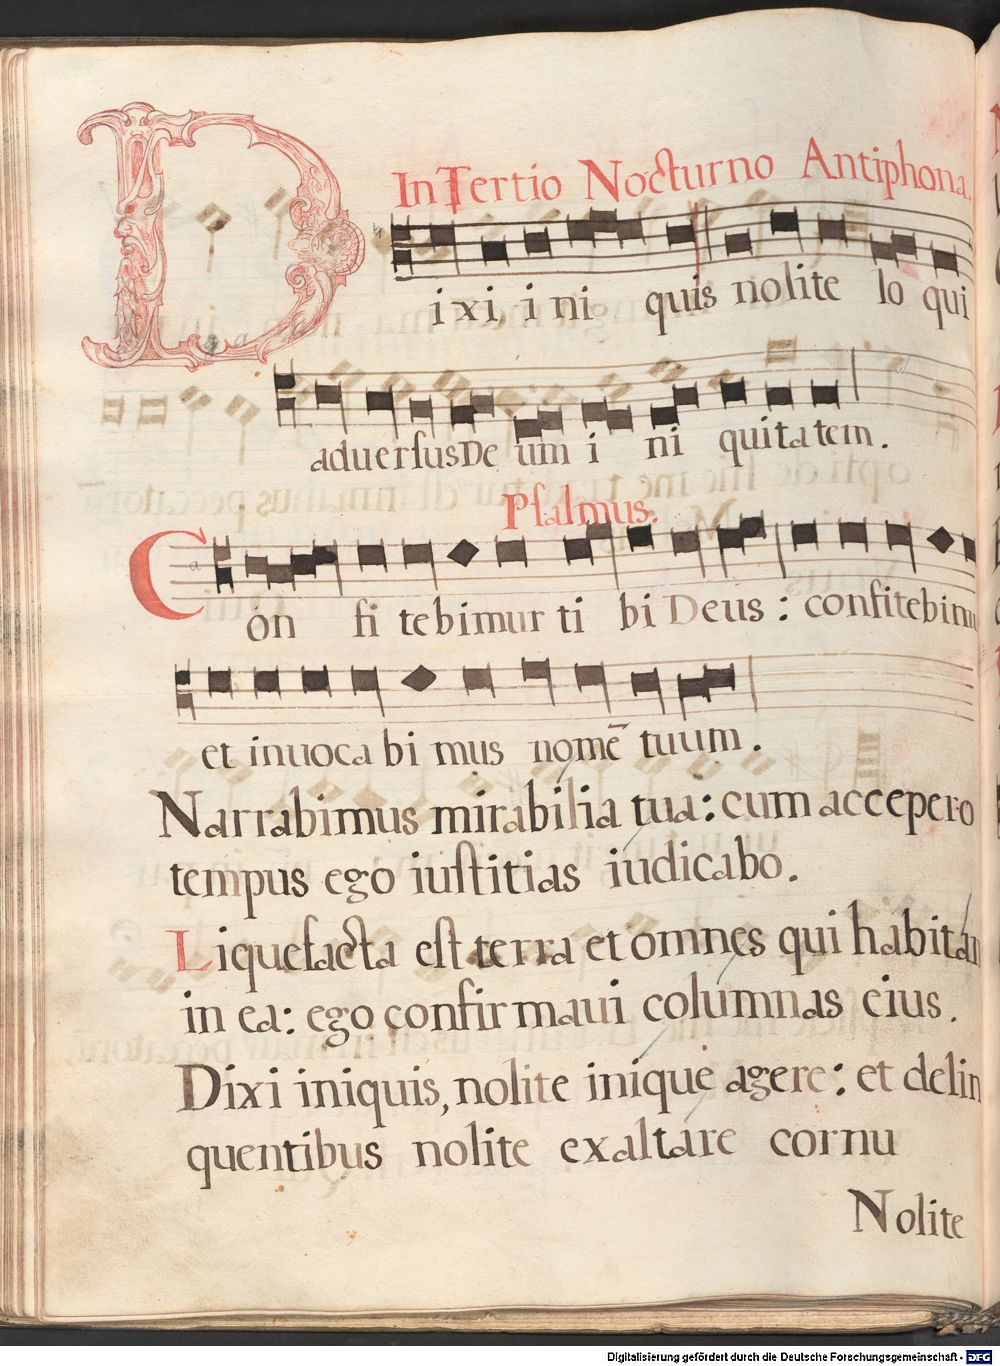 In Tertio Nocturno Antiphona.
Dixi, i ni quis nolite lo qui
aduerſus De um i ni quitatem.
Pſalmus.
Con fi tebimur ti bi Deus : confitebimu
et inuoca bi mus nomē tuum.
Narrabimus mirabilia tua: cum accepero
tempus ego iuſtitias iudicabo.
Liquefacta eſt terra et omnes qui habitan
in ea: ego confirmaui columnas eius.
Dixi iniquis, nolite inique agere: et delin
quentibus nolite exaltare cornu
Nolite
Digitalisierung gefördert durch die Deutsche Forschungsgemeinschaft - DFG